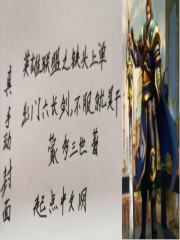 真手动封面
英雄联盟之铁头上单
出门六长剑,不服就是干
蒙多三世 著
起点中文网